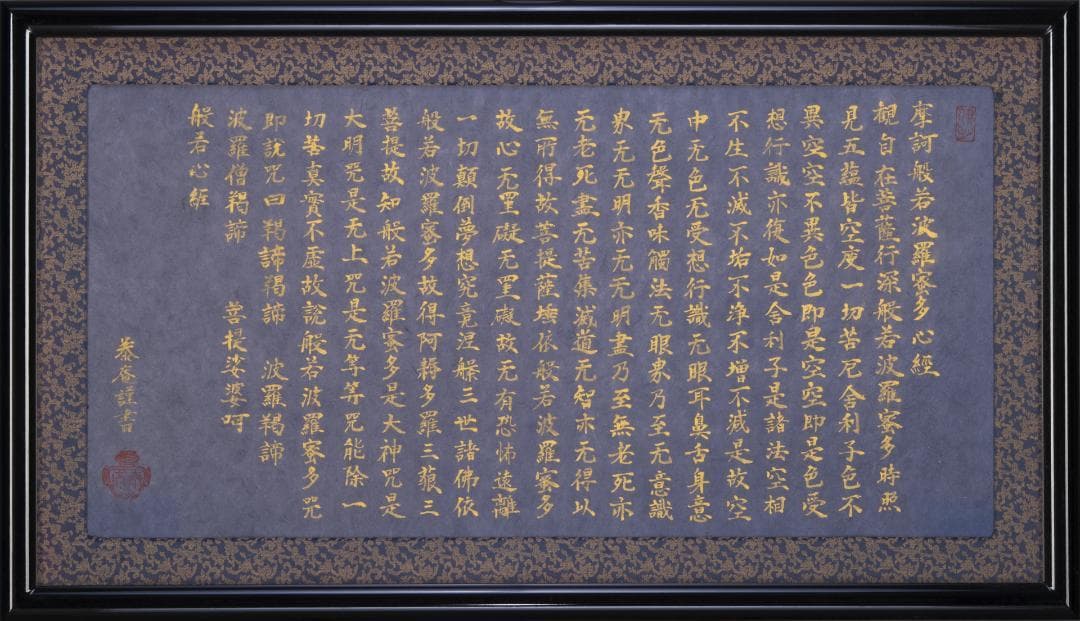 摩訶般若波羅蜜多心經
觀自在菩薩行深般若波羅蜜多時照
見五蘊皆空度一切苦厄舍利子色不
異空空不異色色即是空空即是色受
想行識亦復如是舍利子是諸法空相
不生不滅不垢不净不增不減是故空
中无色无受想行識无眼耳鼻舌身意
无色聲香味觸法无眼界乃至无意識
界无无明亦无无明盡乃至無老死亦
无老死盡无苦集滅道无智亦无得以
無所得故菩提薩埵依般若波羅蜜多
故心无罣礙无罣礙故无有恐怖遠離
一切顛倒夢想究竟涅槃三世諸佛依
般若波羅蜜多故得阿耨多羅三藐三
菩提故知般若波羅蜜多是大神咒是
大明咒是无上咒是无等等咒能除一
切苦真實不虛故説般若波羅蜜多咒
即説咒曰 羯諦羯諦 波羅羯諦
波羅僧羯諦 菩提娑婆呵
般若心經
謹書